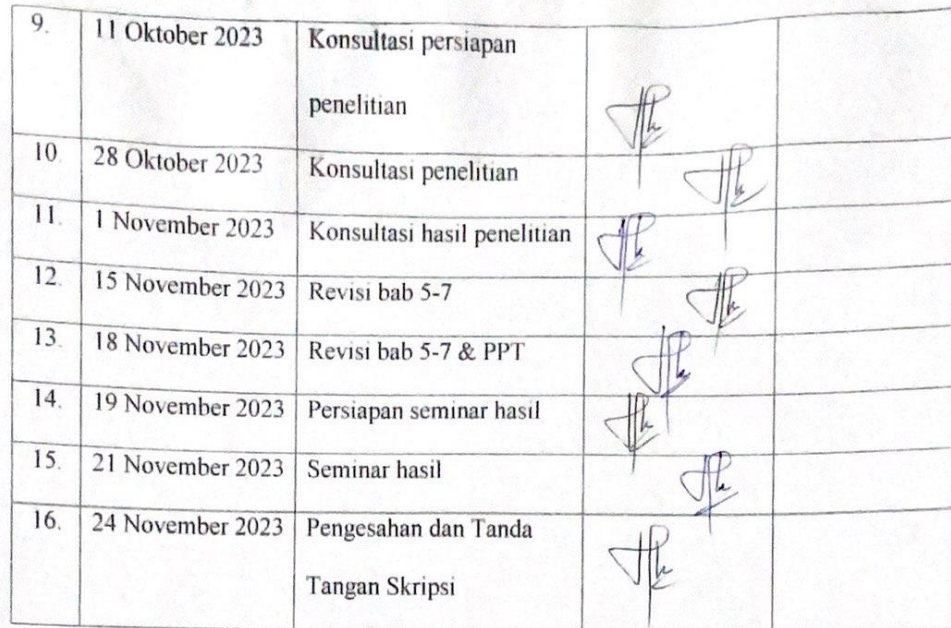 9. 11 Oktober 2023 Konsultasi persiapan
penelitian
10. 28 Oktober 2023 Konsultasi penelitian
11. 1 November 2023 Konsultasi hasil penelitian
12. 15 November 2023 Revisi bab 5-7
13. 18 November 2023 Revisi bab 5-7 & PPT
14. 19 November 2023 Persiapan seminar hasil
15. 21 November 2023 Seminar hasil
16. 24 November 2023 Pengesahan dan Tanda
Tangan Skripsi